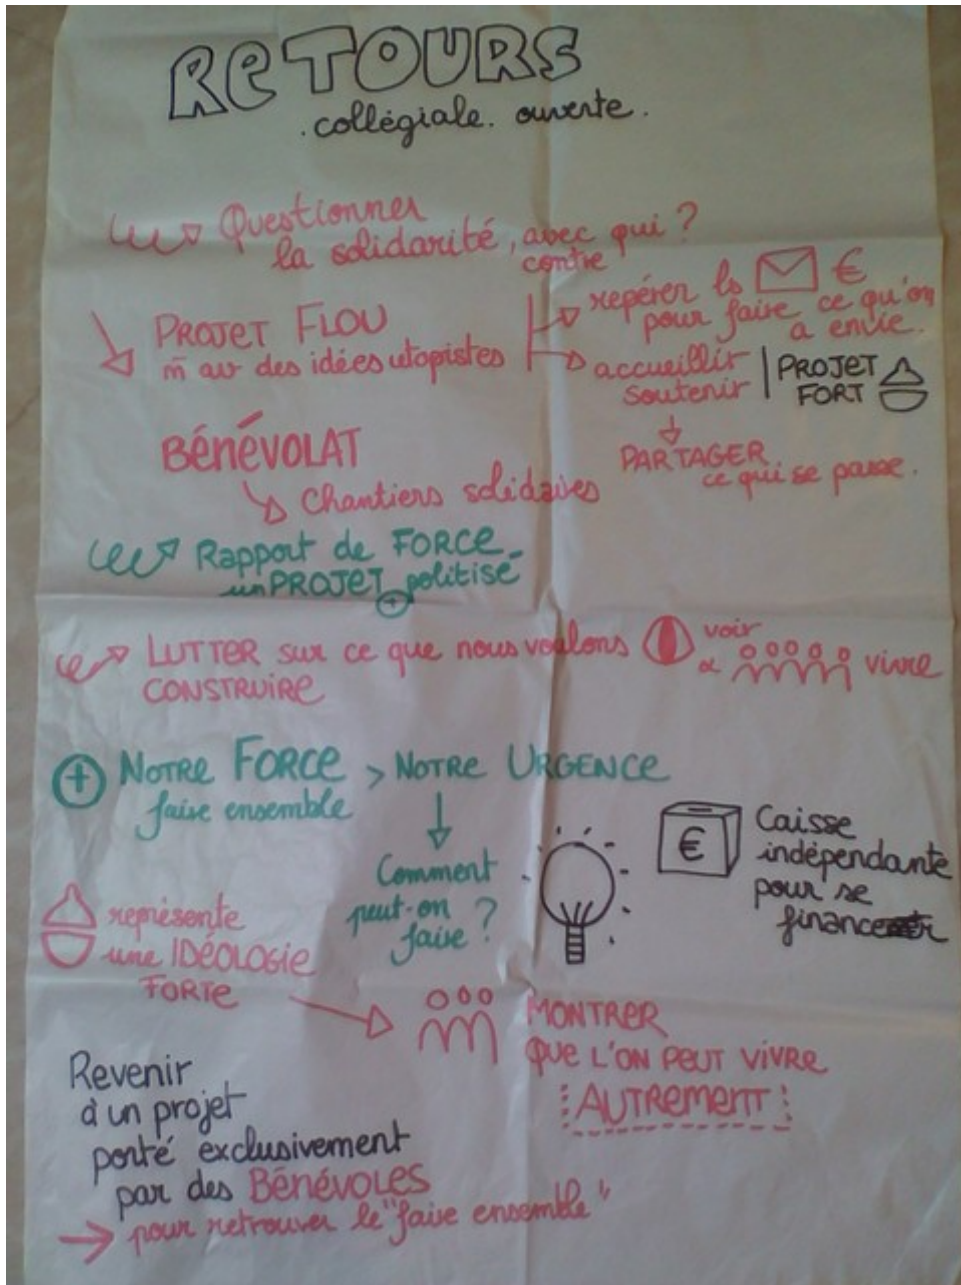 RETOURS
.collégiale. ouverte.
Questionner
la solidarité, avec qui ?
contre
PROJET FLOU
m̄ av des idées utopistes
repérer ls €
pour faire ce qu'on
a envie.
accueillir
soutenir
PROJET
FORT
PARTAGER
ce qui se passe.
BÉNÉVOLAT
Chantiers solidaires
Rapport de FORCE
un PROJET politisé
+
LUTTER sur ce que nous voulons
CONSTRUIRE
voir
vivre
+ NOTRE FORCE > NOTRE URGENCE
faire ensemble
Comment
peut-on
faire ?
€
Caisse
indépendante
pour se
financer
représente
une IDÉOLOGIE
FORTE
MONTRER
QUE L'ON PEUT VIVRE
AUTREMENT
Revenir
à un projet
porté exclusivement
par des BÉNÉVOLES
→ pour retrouver le "faire ensemble"